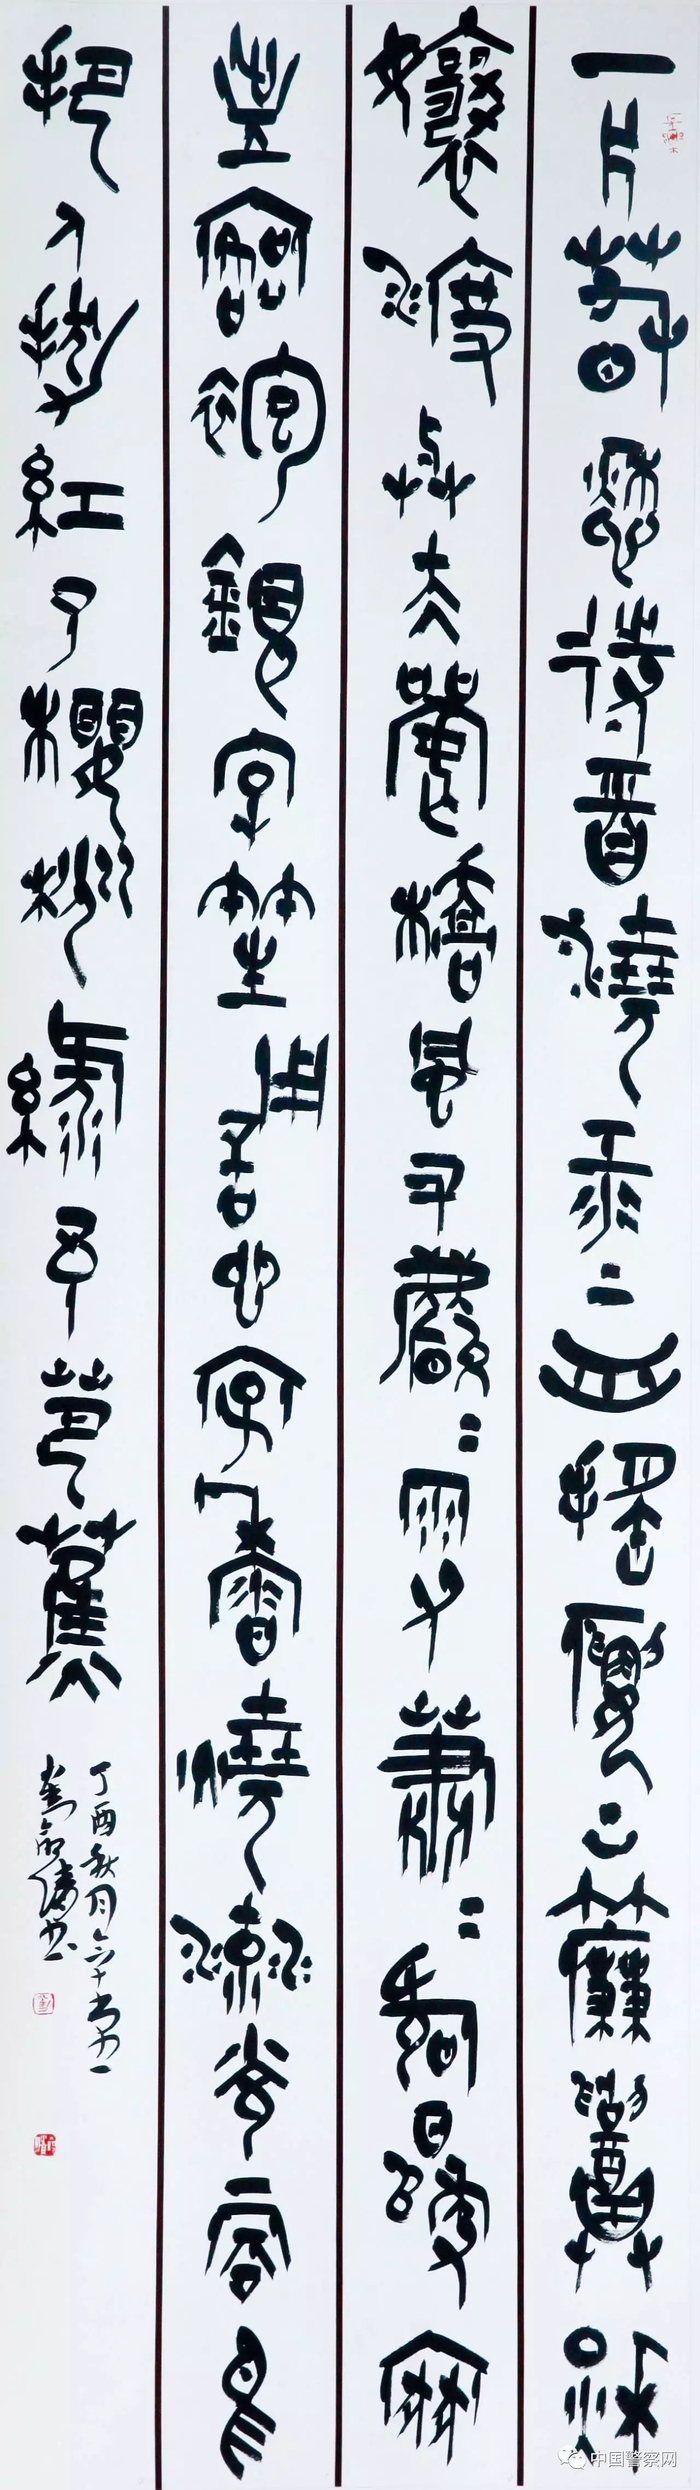 一片春愁待酒澆江上舟搖樓上簾招秋
娘渡與泰娘橋風又飄〻雨又蕭〻何日歸家
洗客袍銀字笙調心字香燒流光容易
把人拋紅了櫻桃綠了芭蕉
丁酉秋月
中国警察网